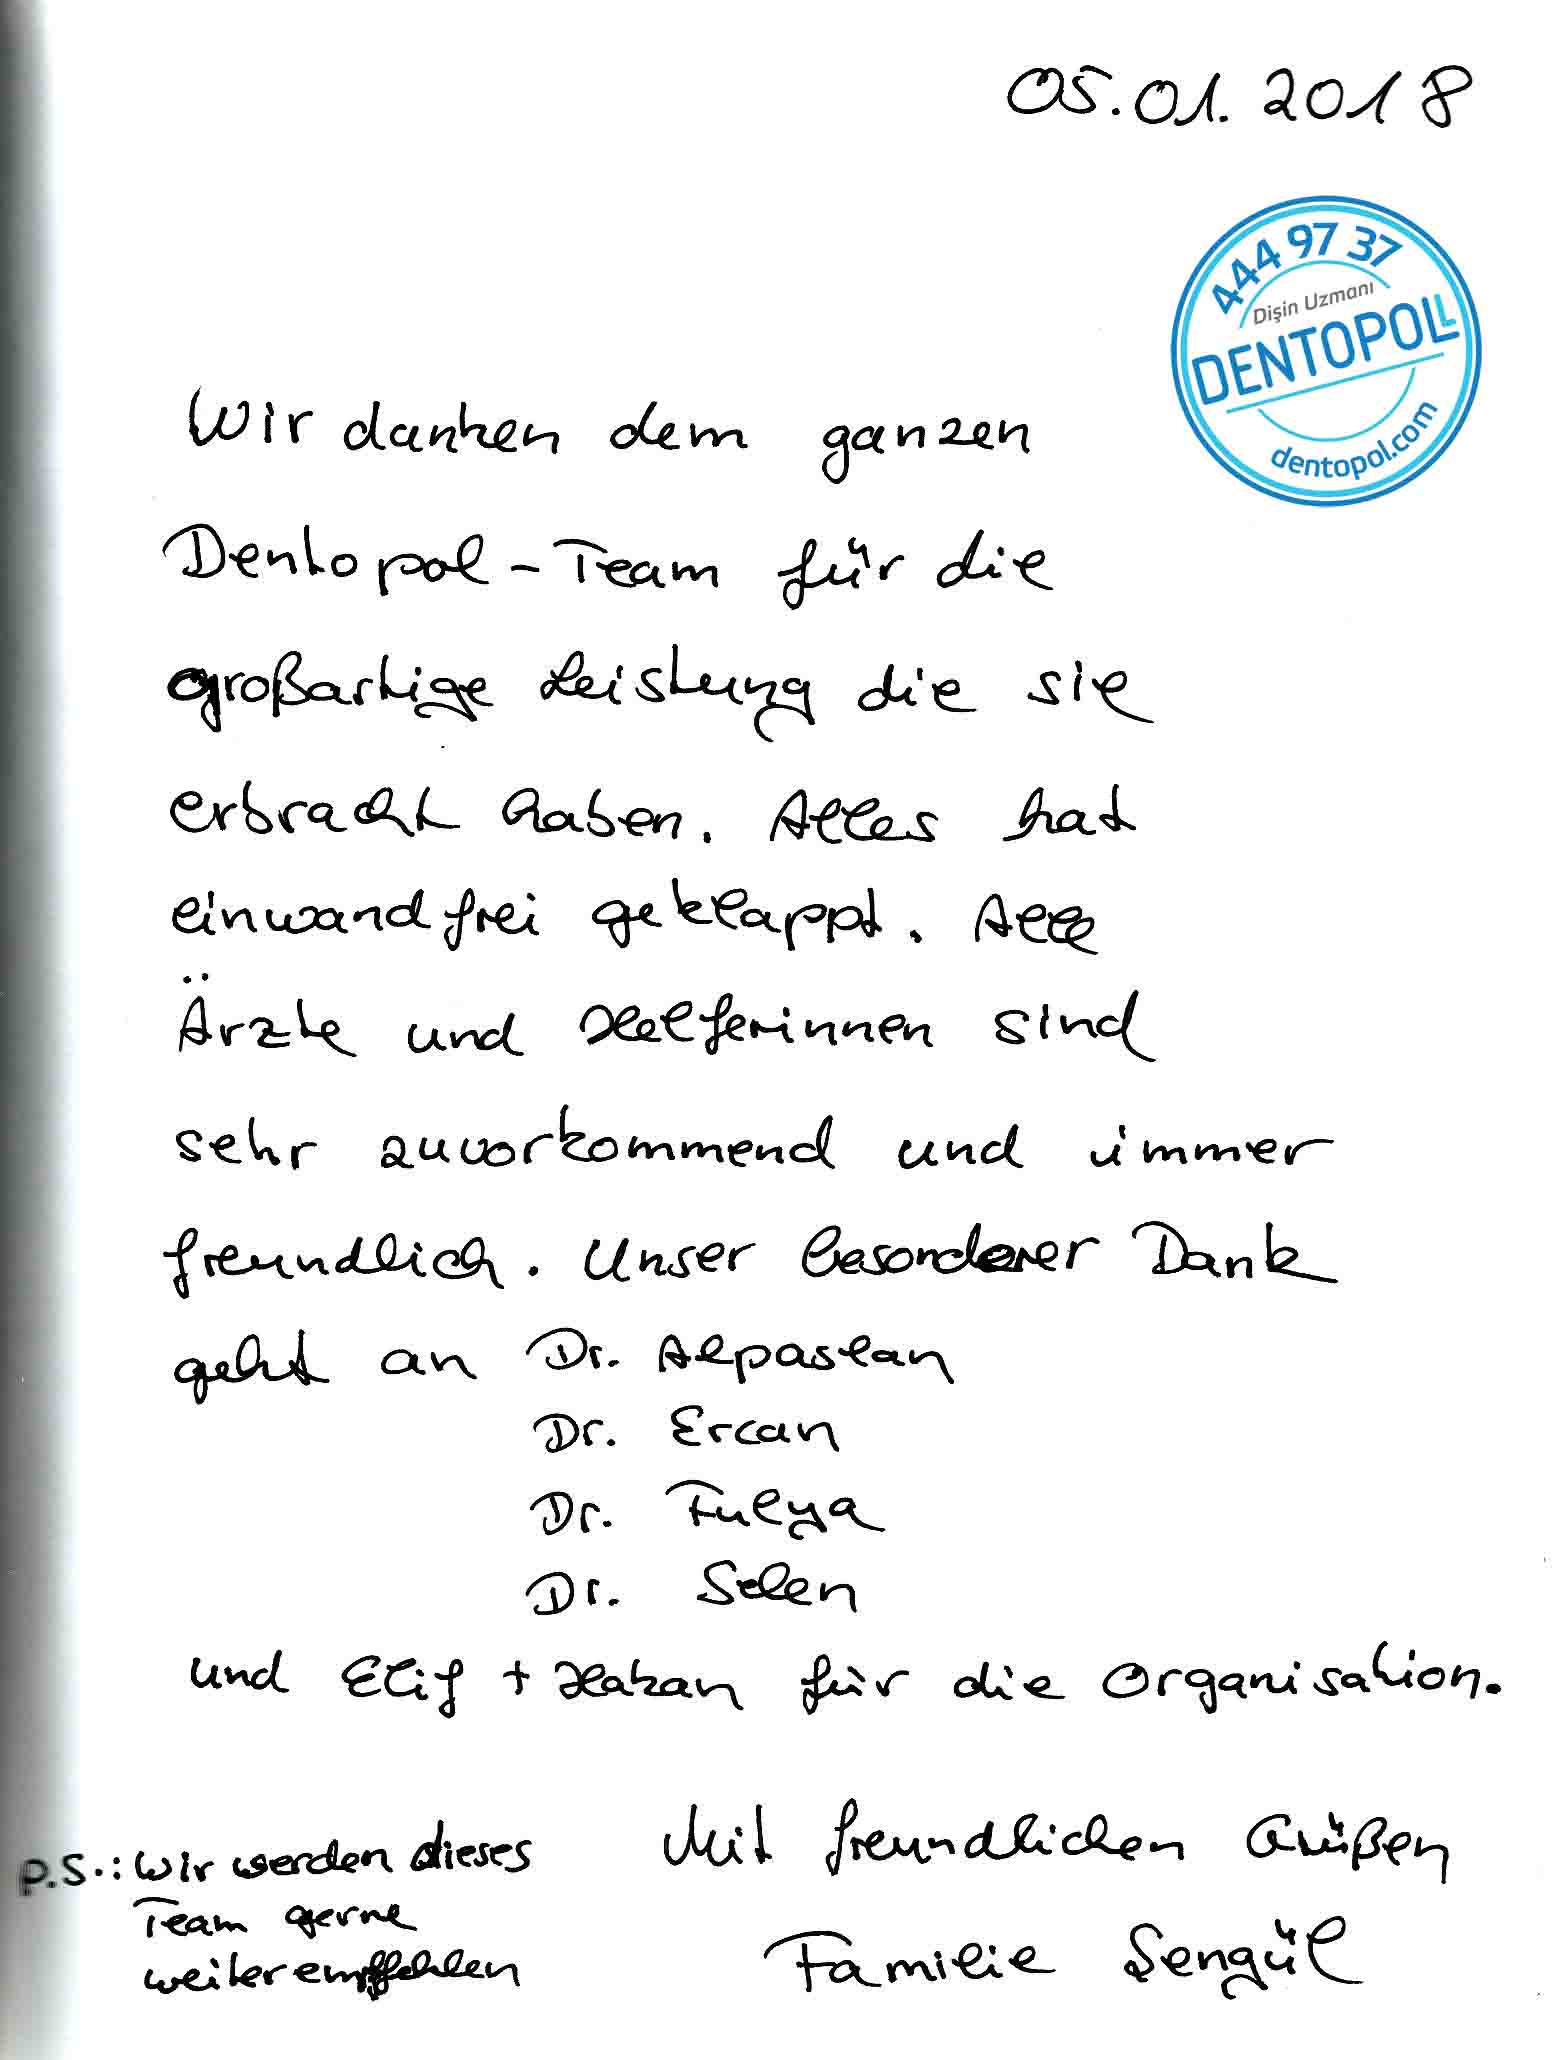 05.01.2018
444 97 37
Dişin Uzmanı
DENTOPOL
dentopol.com
Wir danken dem ganzen
Dentopol-Team für die
großartige Leistung die sie
erbracht haben. Alles hat
einwandfrei geklappt. Alle
Ärzte und Helferinnen sind
sehr zuvorkommend und immer
freundlich. Unser besonderer Dank
geht an Dr. Alpaslan
Dr. Ercan
Dr. Fulya
Dr. Selen
und Elif + Hakan für die Organisation.
Mit freundlichen Grüßen
Familie Sengül
P.S.: Wir werden dieses
Team gerne
weiterempfehlen